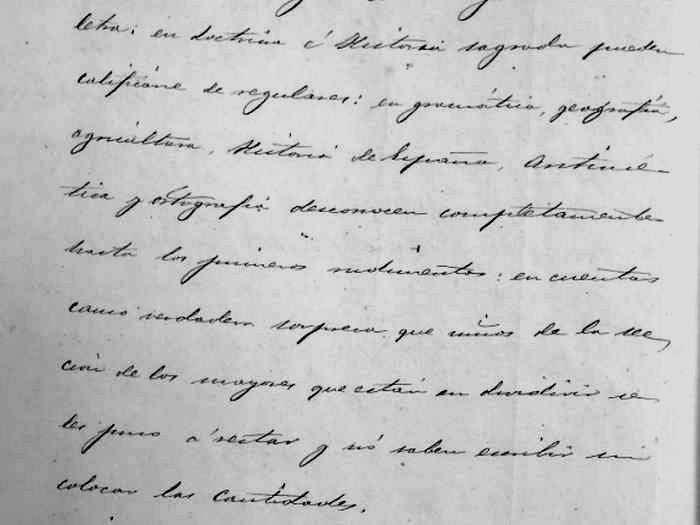 letra: en doctrina é Historia sagrada pueden
calificarse de regulares: en gramática, geografía,
agricultura, Historia de España, Aritmé-
tica y ortografía desconocen completamente
hasta los primeros rudimentos: en cuentas
causó verdadera sorpresa que niños de la sec
ción de los mayores que están en dividir se
les puso á restar y no saben escribir ni
colocar las cantidades.